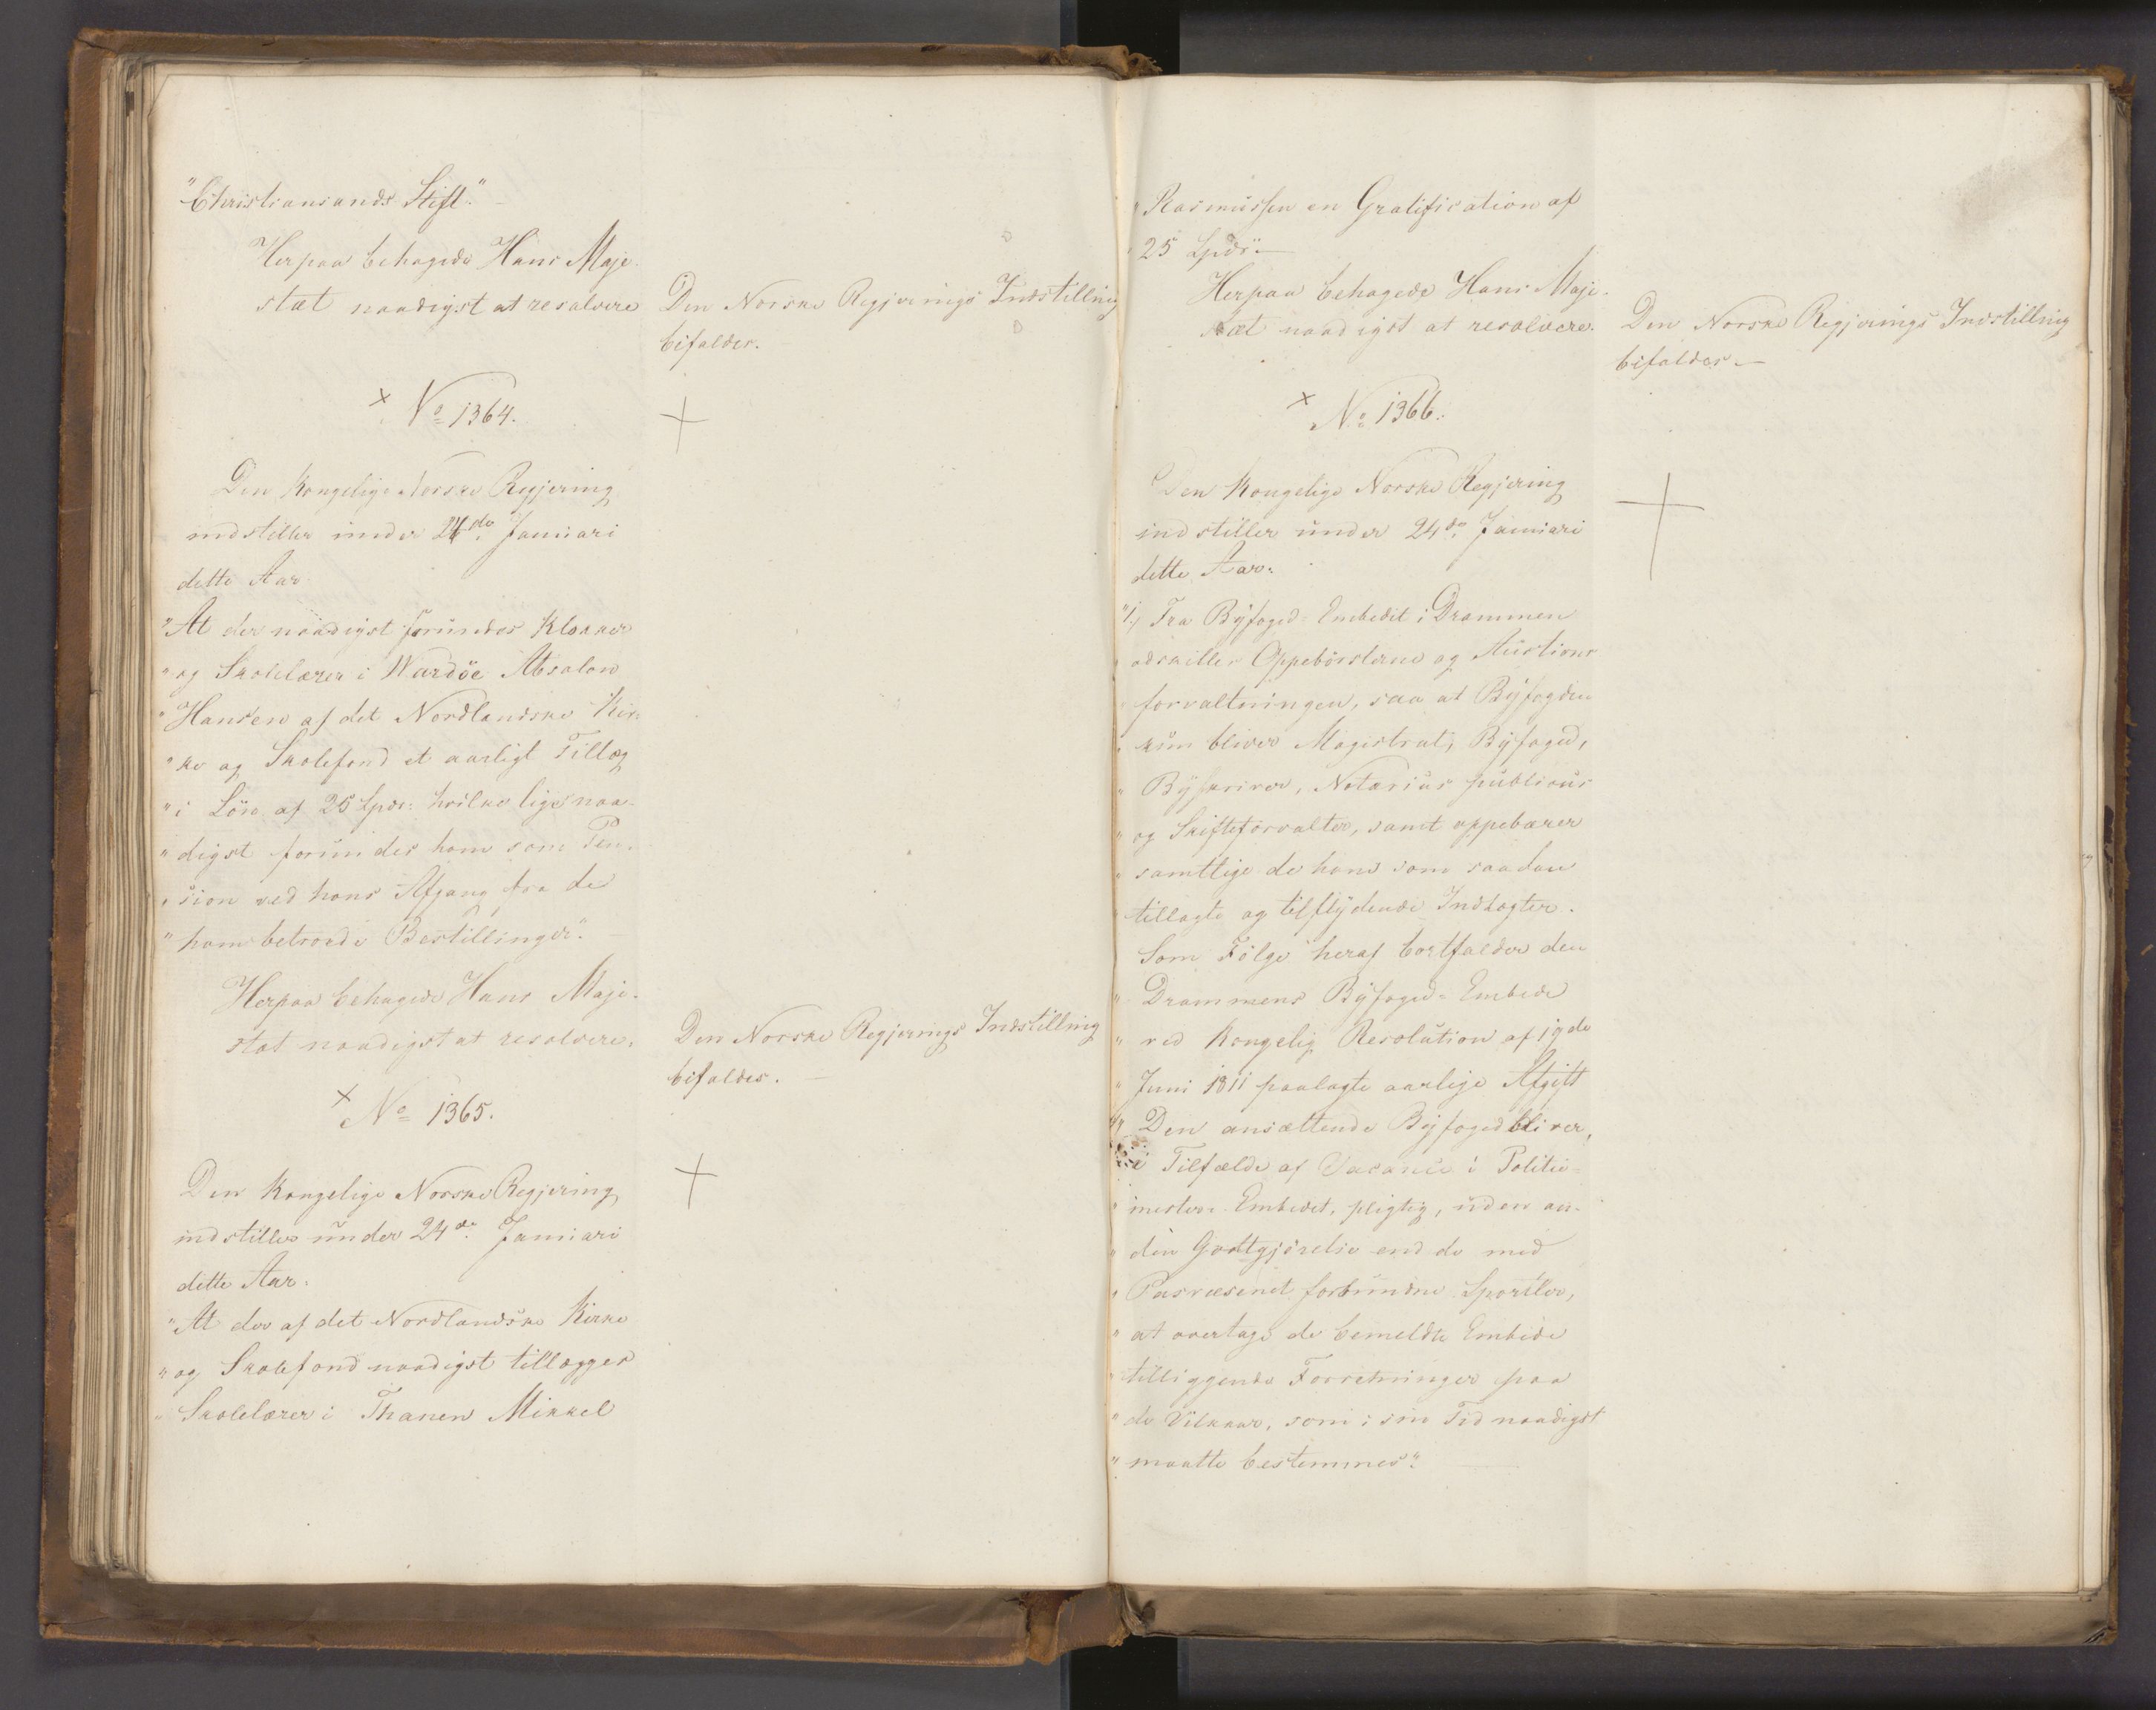 "Christiansands Stift."
Herpaa behagede Hans Maje-
stæt naadigst at resolvere
Den Norske Regjerings Indstilling
bifaldes.
× No 1364.
Den Kongelige Norske Regjering
indstiller under 24de Januari
dette Aar
"At der naadigst forundes Klokker
" og Skolelærer i Wardöe Absalon
" Hansen af det Nordlandske Kir-
" ke og Skolefond et aarligt Tillæg
" i Lön af 25 Spdr: hvilke lige naa-
" digst forundes ham som Pen-
" sion ved hans Afgang fra de
" ham betroede Bestillinger".
Herpaa behagede Hans Maje-
stæt naadigst at resolvere.
Den Norske Regjerings Indstilling
bifaldes.
× No 1365.
Den Kongelige Norske Regjering
indstiller under 24de Januari
dette Aar.
"At der af det Nordlandske Kirke
" og Skolefond naadigst tillægges
" Skolelærer i Thanen Mikkel
" Rasmussen en Gratification af
" 25 Spdr"
Herpaa behagede Hans Maje-
stæt naadigst at resolvere.
Den Norske Regjerings Indstilling
bifaldes.
× No 1366.
Den Kongelige Norske Regjering
indstiller under 24de Januari
dette Aar.
"1, Fra Byfoged-Embedet i Drammen
" adskilles Oppebörslerne og Auctions
" forvaltningen, saa at Byfogden
" kun bliver Magistrat, Byfoged,
" Byskriver, Notarius publicus
" og Skifteforvalter, samt oppebærer
" samtlige de ham som saadan
" tillagte og tilflydende Indtægter.
Som Fölge heraf bortfalder den
" Drammens Byfoged-Embede
" ved Kongelig Resolution af 19de
" Juni 1811 paalagte aarlige Afgift
" Den ansættende Byfoged bliver,
" i Tilfælde af Vacance i Politie-
" mester-Embedet, pligtig, uden an-
" den Godtgjörelse end de med
" Pasvæsenet forbundne Sportler,
" at overtage de bemeldte Embede
" tilliggende Forretninger paa
" de Vilkaar, som i sin Tid naadigst
" maatte bestemmes".